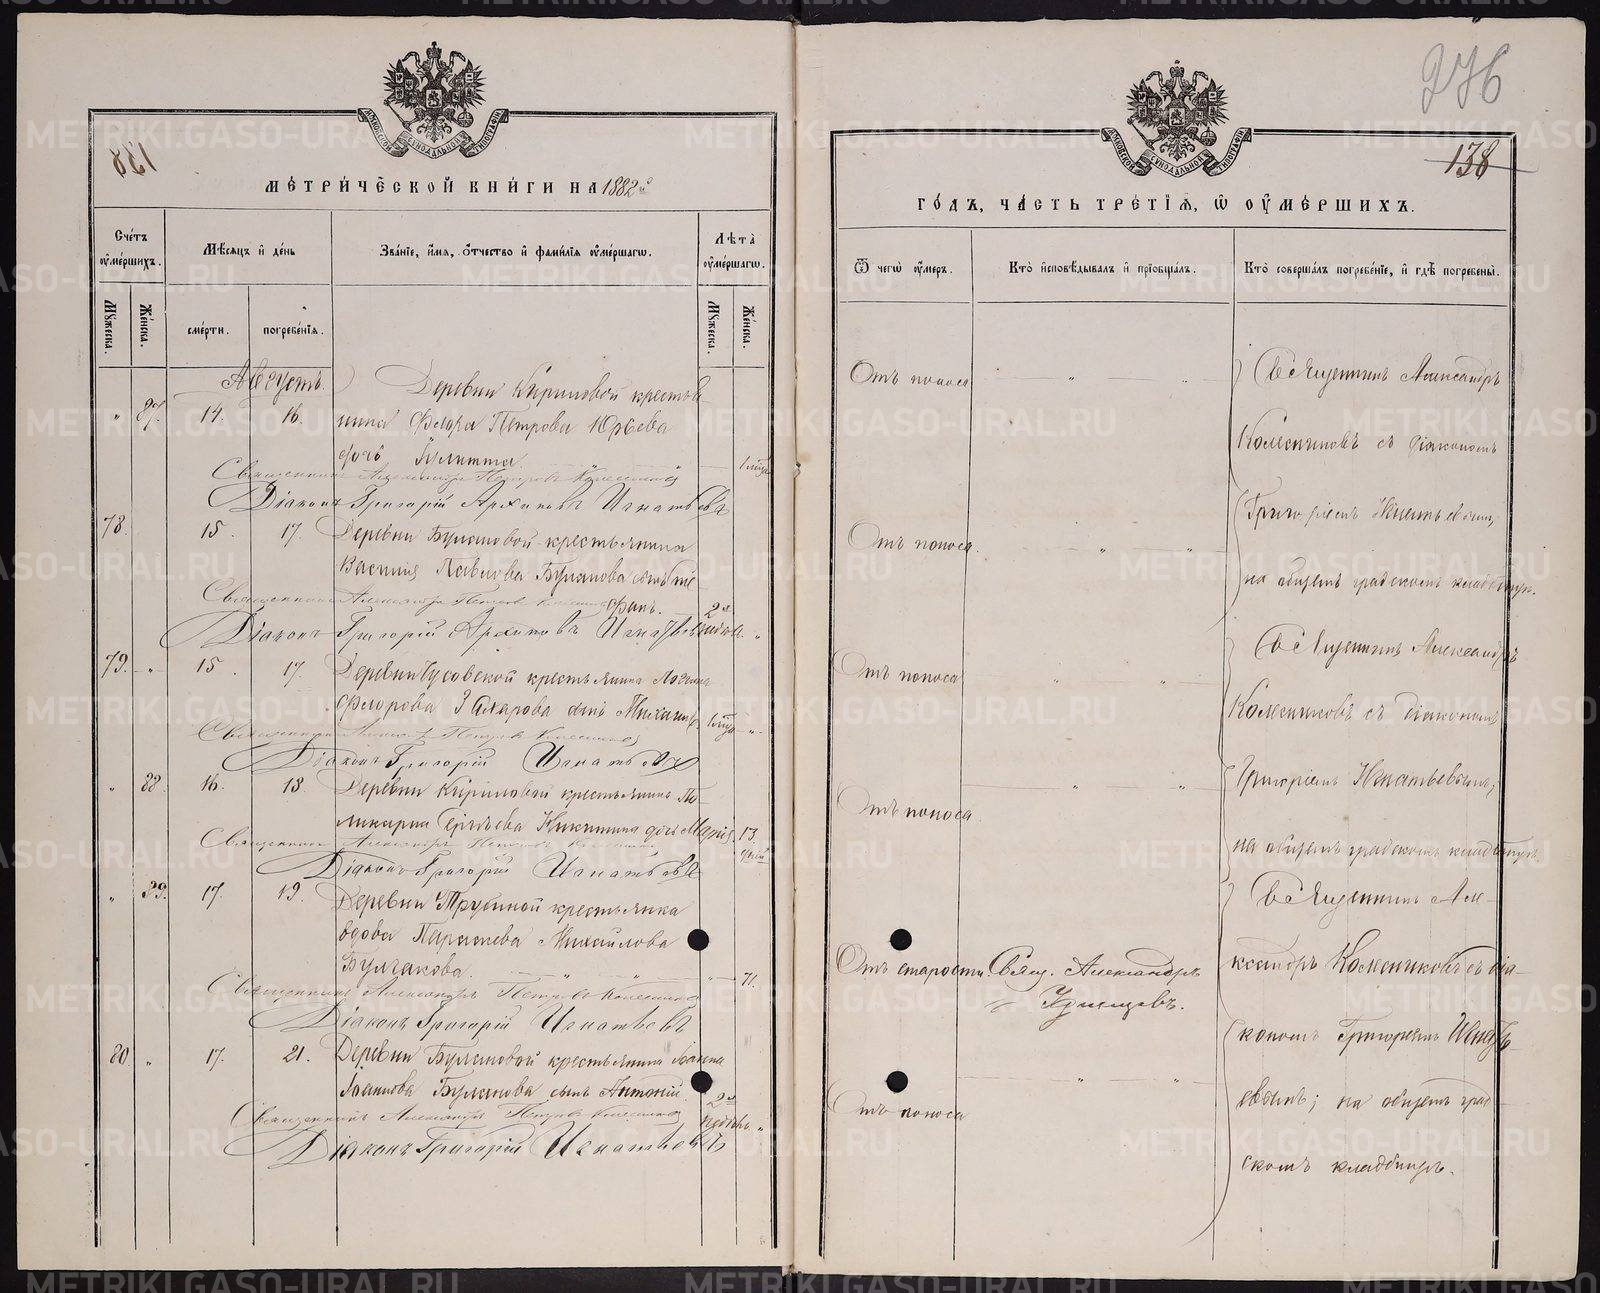 138
МЕТРИЧЕСКОЙ КНИГИ НА 1882й
Счетъ умершихъ.
Мужеска.
Женска.
Мѣсяцъ и день
смерти.
погребенія.
Званіе, имя, отчество и фамилія умершаго.
Лѣта умершаго.
Мужеска.
Женска.
Августъ.
Деревни Кириловой крестья
„ 87. 14. 16. нина Ѳедора Петрова Юрьева
дочь Іулитта
Священникъ Александръ Петровъ Колесниковъ
Діаконъ Григорій Архиповъ Игнатьевъ
78. 15. 17. Деревни Булановой крестьянина
Василія Павлова Буланова сынъ Сте
фанъ. 2х
Священникъ Александръ Петровъ Колесниковъ
Діаконъ Григорій Архиповъ Игнатьевъ
79. „ 15. 17. Деревни Чусовской крестьянина
Захарова сынъ Михаилъ
Священникъ Александръ Петровъ Колесниковъ
Діаконъ Григорій Игнатьевъ
„ 88. 16. 18. Деревни Кириловой крестьянина По
ликарпа Сергѣева Никитина дочь Марія. 13.
дней
Священникъ Александръ Петровъ Колесниковъ
Діаконъ Григорій Игнатьевъ
„ 89. 17. 19. Деревни Трубиной крестьянка
вдова Параскева Михайлова
Булчакова. 71.
Священникъ Александръ Петровъ Колесниковъ
Діаконъ Григорій Игнатьевъ
80. „ 17. 21. Деревни Булановой крестьянина Іоанна
Іоаннова Буланова сынъ Антоній. 2х
недѣль. „
Священникъ Александръ Петровъ Колесниковъ
Діаконъ Григорій Игнатьевъ
276
138
ГОДЪ, ЧАСТЬ ТРЕТІЯ, Ѿ ОУМЕРШИХЪ.
Ѿ чегѡ умеръ.
Кто исповѣдывалъ и пріобщалъ.
Кто совершалъ погребеніе, и гдѣ погребены.
Отъ поноса „ „ Священникъ Александръ
Колесниковъ съ діакономъ
Григоріемъ Игнатьевымъ,
Отъ поноса. „ „
на общемъ градскомъ кладбищѣ.
Священникъ Александръ
Отъ поноса „ „
Колесниковъ съ діакономъ
Григоріемъ Игнатьевымъ,
Отъ поноса. „ „
на общемъ градскомъ кладбищѣ.
Священникъ Але-
Отъ старости. Свящ. Александръ
ксандръ Колесниковъ съ діа-
кономъ Григоріемъ Игнать-
Отъ поноса „ „
евымъ; на общемъ град-
скомъ кладбищѣ.
METRIKI.GASO-URAL.RU